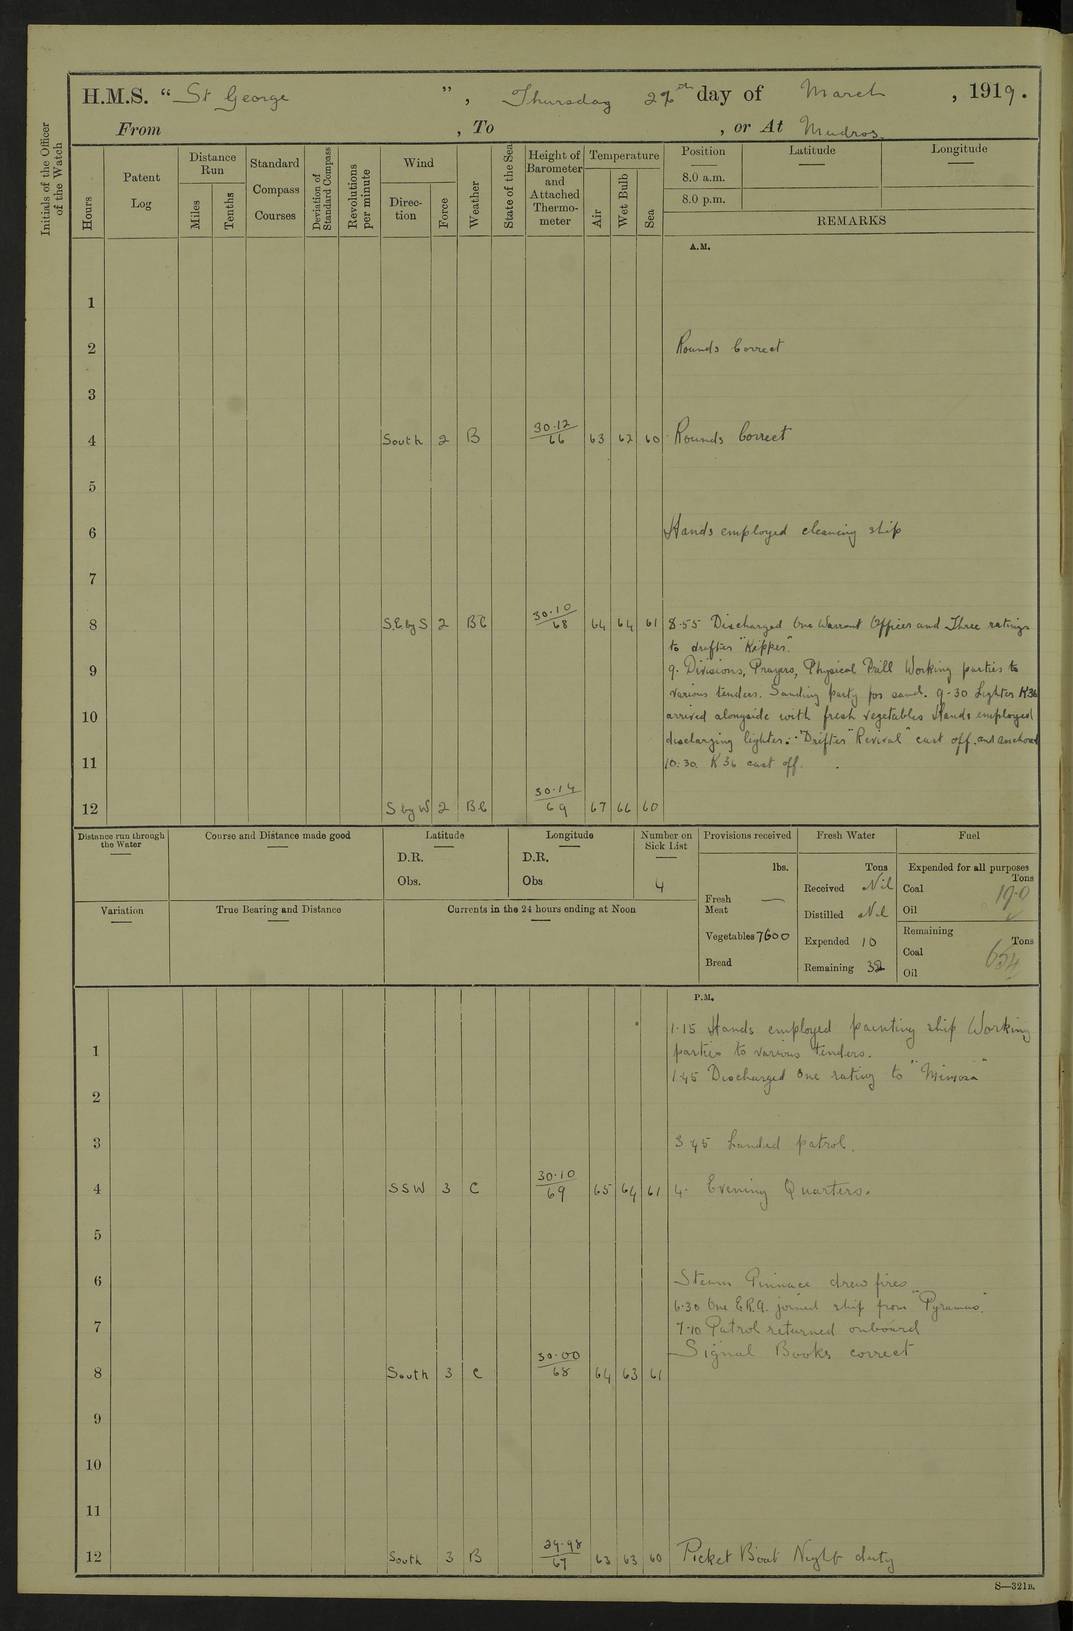 H.M.S. “ St George ” , Thursday 27th day of March , 1919.
From , To , or At Mudros.
Initials of the Officer of the Watch
Hours
Patent Log
Distance Run
Miles
Tenths
Standard Compass Courses
Deviation of Standard Compass
Revolutions per minute
Wind
Direc-tion
Force
Weather
State of the Sea
Height of Barometer and Attached Thermo-meter
Temperature
Air
Wet Bulb
Sea
Position Latitude Longitude
8.0 a.m.
8.0 p.m.
REMARKS
A.M.
1
2 Rounds Correct
3
4 South 2 B 30·12/66 63 62 60 Rounds Correct
5
6 Hands employed cleaning ship
7
8 S.E by S 2 BC 30·10/68 64 64 61 8·55 Discharged One Warrant Officer and Three ratings
to drifter "Kipper".
9 9. Divisions, Prayers, Physical Drill Working parties to
various tenders. Sanding party for sand. 9-30 Lighter K36
10 arrived alongside with fresh vegetables Hands employed
discharging lighter. Drifter "Revival" cast off. and anchored
11 10.30. K36 cast off.
12 S by W 2 BC 30·14/69 67 66 60
Distance run through the Water
Course and Distance made good
Latitude
D.R.
Obs.
Longitude
D.R.
Obs
Number on Sick List
4
Provisions received
lbs.
Fresh Meat —
Vegetables 7600
Bread
Fresh Water
Tons
Received Nil
Distilled Nil
Expended 10
Remaining 32
Fuel
Expended for all purposes
Tons
Coal 19.0
Oil
Remaining
Tons
Coal 654
Oil
Variation
True Bearing and Distance
Currents in the 24 hours ending at Noon
P.M.
1·15 Hands employed painting ship Working
1 parties to various tenders.
1·45 Discharged One rating to "Mimosa"
2
3 3·45 Landed patrol.
4 SSW 3 C 30·10/69 65 64 61 4. Evening Quarters.
5
6 Steam Pinnace drew fires
6·30 One E.R.A. joined ship from "Pyramus."
7 7·10 Patrol returned onboard
Signal Books correct
8 South 3 C 30·00/68 64 63 61
9
10
11
12 South 3 B 29·98/67 63 63 60 Picket Boat Night duty
S—321B.